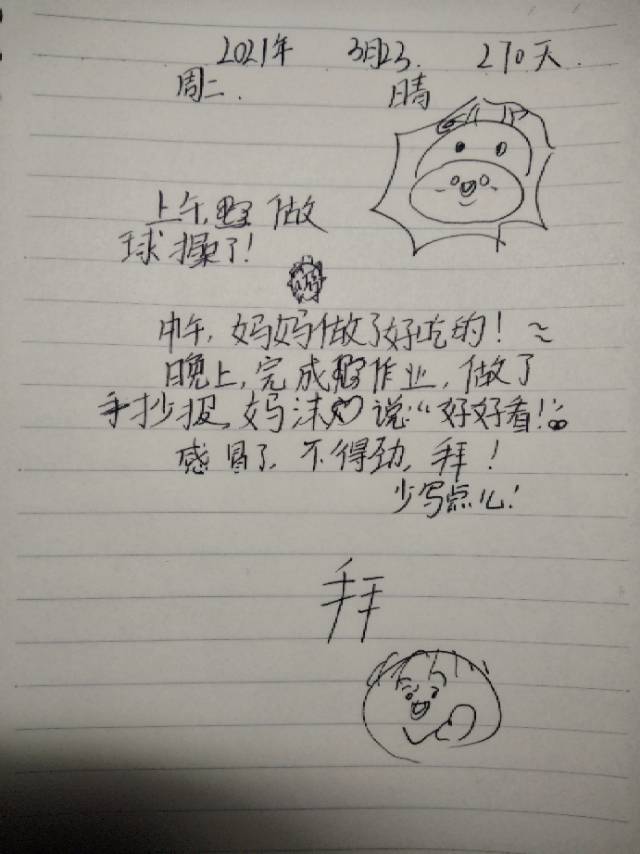 2021年 3月23. 270天.
周二. 晴
上午, 做
球操了!
中午, 妈妈做了好吃的! ~
晚上, 完成作业, 做了
手抄报, 妈沫♡说:“好好看!
感冒了, 不得劲, 拜!
少写点儿!
拜